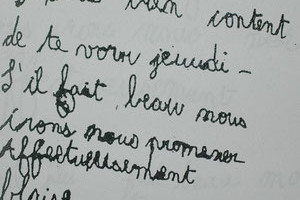 bien content
de te voir jeudi -
S'il fait beau nous
irons nous promener
Affectueusement
blaise